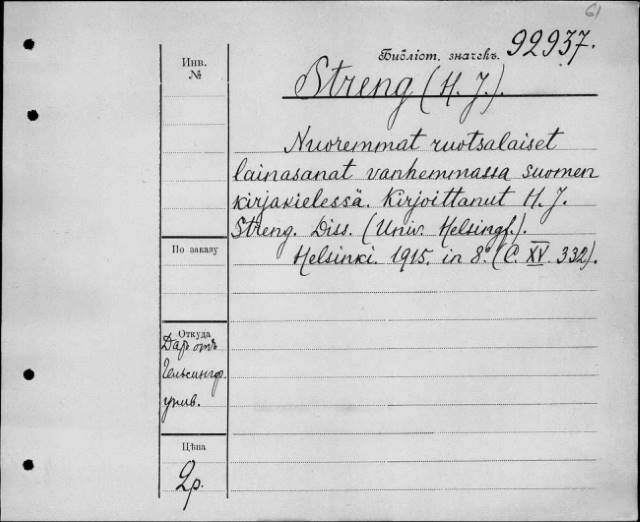 61
Библіот. значекъ. 92937.
Инв.
№
Streng (H. J.).
Nuoremmat ruotsalaiset
lainasanat vanhemmassa suomen
kirjakielessä. Kirjoittanut H. J.
Streng. Diss. (Univ. Helsingf.).
Helsinki. 1915. in 8º. (C. XV. 332).
По заказу
Откуда
Даръ отъ
Гельсингф.
унив.
Цѣна
2 р.